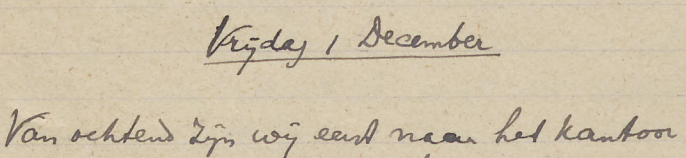 Vrijdag 1 December
Van ochtend zijn wij eerst naar het kantoor